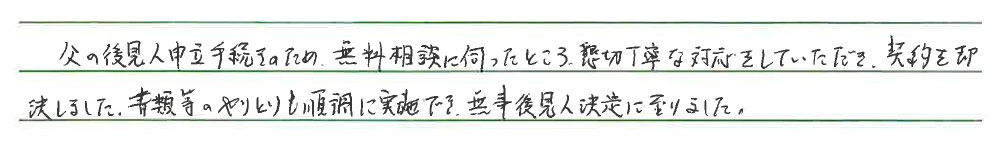 父の後見人申立手続きのため、無料相談に伺ったところ、懇切丁寧な対応をしていただき、契約を即
決しました。書類等のやりとりも順調に実施でき、無事後見人決定に至りました。